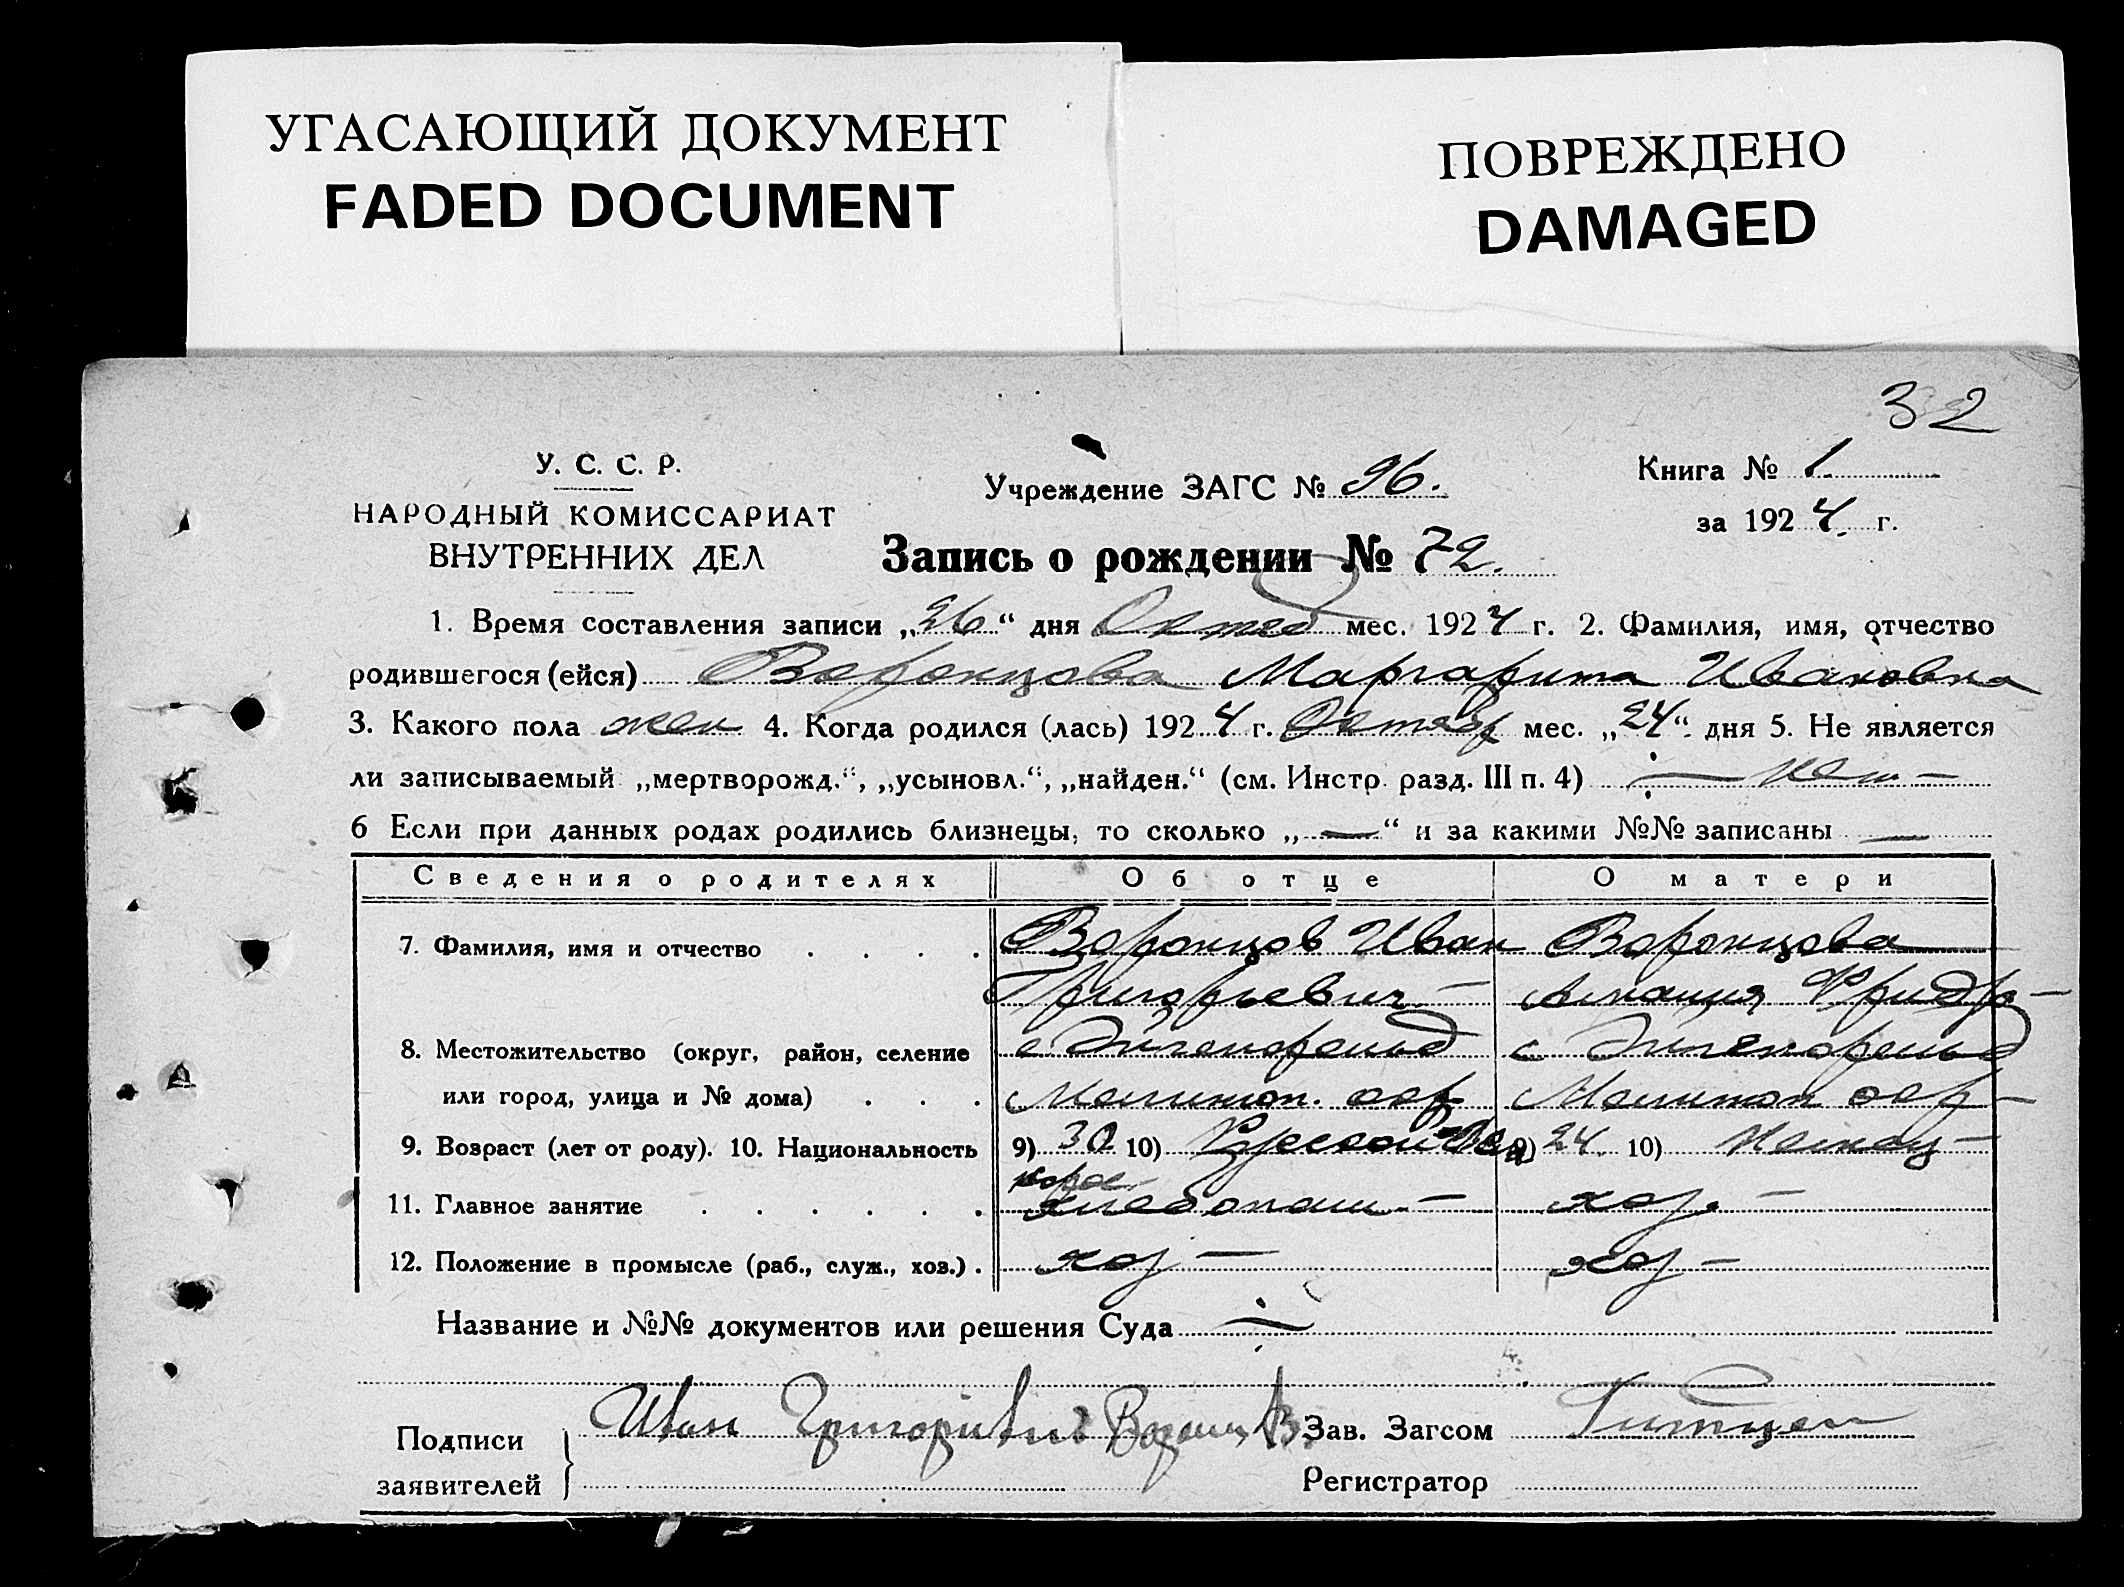 УГАСАЮЩИЙ ДОКУМЕНТ
FADED DOCUMENT
ПОВРЕЖДЕНО
DAMAGED
32
У. С. С. Р.
НАРОДНЫЙ КОМИССАРИАТ
ВНУТРЕННИХ ДЕЛ
Учреждение ЗАГС № 96.
Книга № 1
за 1924 г.
Запись о рождении № 72.
1. Время составления записи „26“ дня Октяб мес. 1924 г. 2. Фамилия, имя, отчество
родившегося (ейся) Воронцова Маргарита Ивановна
3. Какого пола жен 4. Когда родился (лась) 1924 г. Октябр мес. „24“ дня 5. Не является
ли записываемый „мертворожд.“, „усыновл.“, „найден.“ (см. Инстр. разд. III п. 4) — нет —
6 Если при данных родах родились близнецы, то сколько „—“ и за какими №№ записаны —
Сведения о родителях Об отце О матери
7. Фамилия, имя и отчество Воронцов Иван Воронцова
Григорьевич — Фридр —
8. Местожительство (округ, район, селение с с
или город, улица и № дома) Мелитоп. окр Мелитоп окр —
9. Возраст (лет от роду). 10. Национальность 9) 30 10) Русской 9) 24. 10) Немец —
11. Главное занятие хлебопаш — хоз. —
12. Положение в промысле (раб., служ., хоз.) хоз — хоз —
Название и №№ документов или решения Суда
Подписи
заявителей
Иван
Зав. Загсом
Регистратор